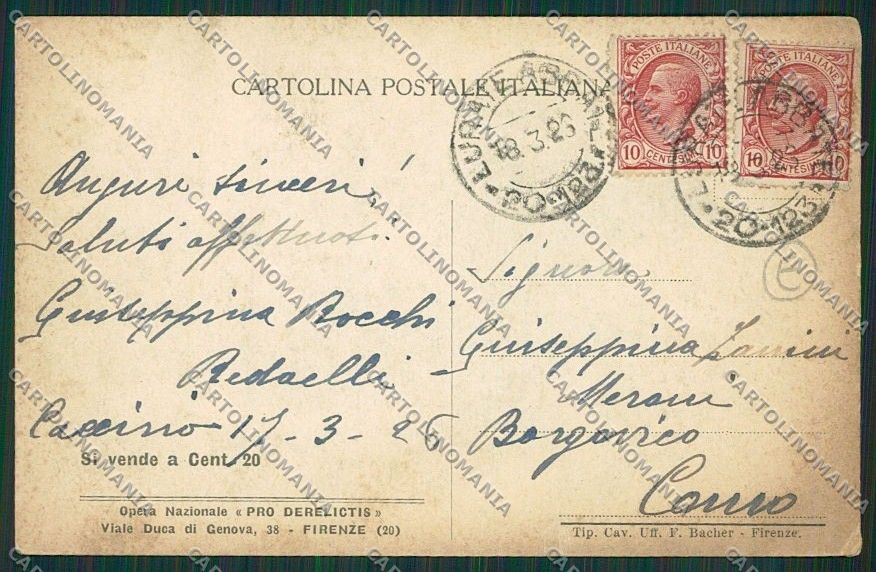 CARTOLINA POSTALE ITALIANA
POSTE ITALIANE
10 CENTESIMI 10
POSTE ITALIANE
10 CENTESIMI 10
LURATE ABBATE
18.3.26
20-123
20-123
Auguri sinceri!
Saluti affettuosi.
Giuseppina Bocchi
Redaelli
Caccivio 17-3-26
Si vende a Cent. 20
Opera Nazionale « PRO DERELICTIS »
Viale Duca di Genova, 38 - FIRENZE (20)
Signora
Giuseppina
Merone
Borgovico
Como
R
Tip. Cav. Uff. F. Bacher - Firenze.
CARTOLINOMANIA